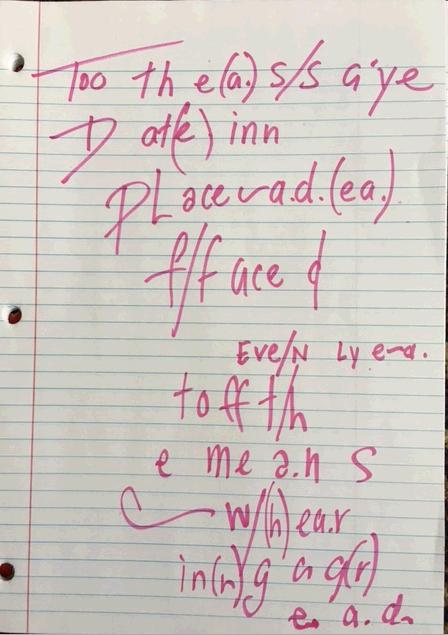 Too th e(a.) s/s a'ye
D at(e) inn
PLace v a.d. (ea.)
f/f ace d
EVe/N Ly e-a.
t o ff t/h
e me a.n S
w/(h) ea.r
in(n)g a g(r)
e. a. d.